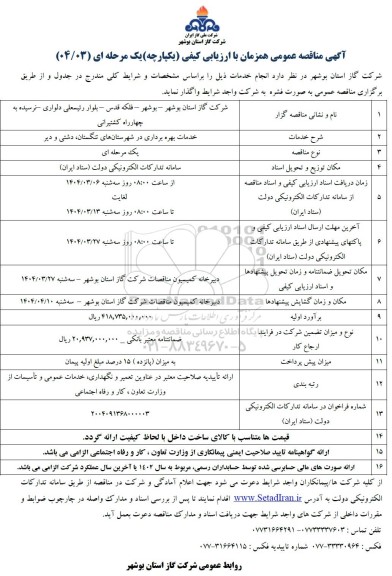 شرکت ملی گاز ایران
شرکت گاز استان بوشهر
آگهی مناقصه عمومی همزمان با ارزیابی کیفی (یکپارچه)یک مرحله ای (۰۴/۰۳)
شرکت گاز استان بوشهر در نظر دارد انجام خدمات ذیل را براساس مشخصات و شرایط کلی مندرج در جدول و از طریق
برگزاری مناقصه عمومی به صورت فشرده به شرکت واجد شرایط واگذار نماید.
۱ نام و نشانی مناقصه گزار شرکت گاز استان بوشهر – بوشهر – فلکه قدس – بلوار رئیسعلی دلواری –نرسیده به
چهارراه کشتیرانی
۲ شرح خدمات خدمات بهره برداری در شهرستان‌های تنگستان، دشتی و دیر
۳ نوع مناقصه یک مرحله ای
۴ مکان توزیع و تحویل اسناد سامانه تدارکات الکترونیکی دولت (ستاد ایران)
۵ زمان دریافت اسناد ارزیابی کیفی و اسناد مناقصه
از سامانه تدارکات الکترونیکی دولت
(ستاد ایران)
از ساعت ۰۸:۰۰ روز سه‌شنبه ۱۴۰۴/۰۳/۰۶
لغایت
تا ساعت ۰۸:۰۰ روز سه‌شنبه ۱۴۰۴/۰۳/۱۳
۶ آخرین مهلت ارسال اسناد ارزیابی کیفی و
پاکتهای پیشنهادی از طریق سامانه تدارکات
الکترونیکی دولت (ستاد ایران)
تا ساعت ۰۸:۰۰ روز سه‌شنبه ۱۴۰۴/۰۳/۲۷
۷ مکان تحویل ضمانتنامه و زمان تحویل پیشنهادها
و اسناد ارزیابی کیفی
دبیرخانه کمیسیون مناقصات شرکت گاز استان بوشهر – سه‌شنبه ۱۴۰۴/۰۳/۲۷
۸ مکان و زمان گشایش پیشنهادها دبیرخانه کمیسیون مناقصات شرکت گاز استان بوشهر – سه‌شنبه ۱۴۰۴/۰۴/۱۰
۹ برآورد اولیه ریال
۱۰ نوع و میزان تضمین شرکت در فرایند
ارجاع کار
ضمانتنامه معتبر بانکی _ ۲۰,۹۳۷,۰۰۰,۰۰۰ ریال
۱۱ میزان پیش پرداخت به میزان (پانزده) ۱۵ درصد مبلغ اولیه پیمان
۱۲ رتبه بندی ارائه تأییدیه صلاحیت معتبر در عناوین تعمیر و نگهداری، خدمات عمومی و تأسیسات از
وزارت تعاون ، کار و رفاه اجتماعی
۱۳ شماره فراخوان در سامانه تدارکات الکترونیکی
دولت (ستاد ایران)
۲۰۰۴۰۹۱۳۶۸۰۰۰۰۰۳
۱۴ قیمت ها متناسب با کالای ساخت داخل با لحاظ کیفیت ارائه گردد.
۱۵ ارائه گواهینامه تایید صلاحیت ایمنی پیمانکاری از وزارت تعاون ، کار و رفاه اجتماعی الزامی می باشد.
۱۶ ارائه صورت های مالی حسابرسی شده توسط حسابداران رسمی، مربوط به سال ۱۴۰۲ یا آخرین سال عملکرد شرکت الزامی می باشد.
از کلیه شرکت ها/پیمانکاران واجد شرایط دعوت می شود جهت اعلام آمادگی و شرکت در مناقصه از طریق سامانه تدارکات
الکترونیکی دولت به آدرس www.SetadIran.ir اقدام نمایند تا پس از بررسی اسناد و مدارک واصله در چارچوب ضوابط و
مقررات داخلی از شرکت های واجد شرایط جهت دریافت اسناد و مدارک مناقصه دعوت بعمل آید.
تلفن تماس : ۰۷۷۳۳۳۳۷۶۰۳ - ۰۷۷۳۱۶۶۴۲۹۱
شماره فکس : ۰۷۷-۳۳۳۳۰۹۶۴ شماره تاییدیه فکس : ۰۷۷-۳۱۶۶۴۱۱۵
روابط عمومی شرکت گاز استان بوشهر